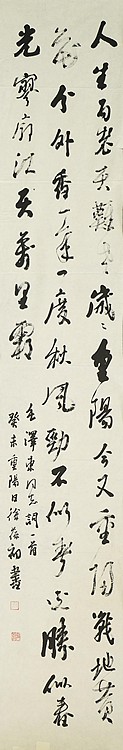 人生易老天難老歲歲重陽今又重陽戰地黃
花分外香一年一度秋風勁不似春光勝似春
光寥廓江天萬里霜
毛澤東同志詞一首
癸未重陽日徐初書